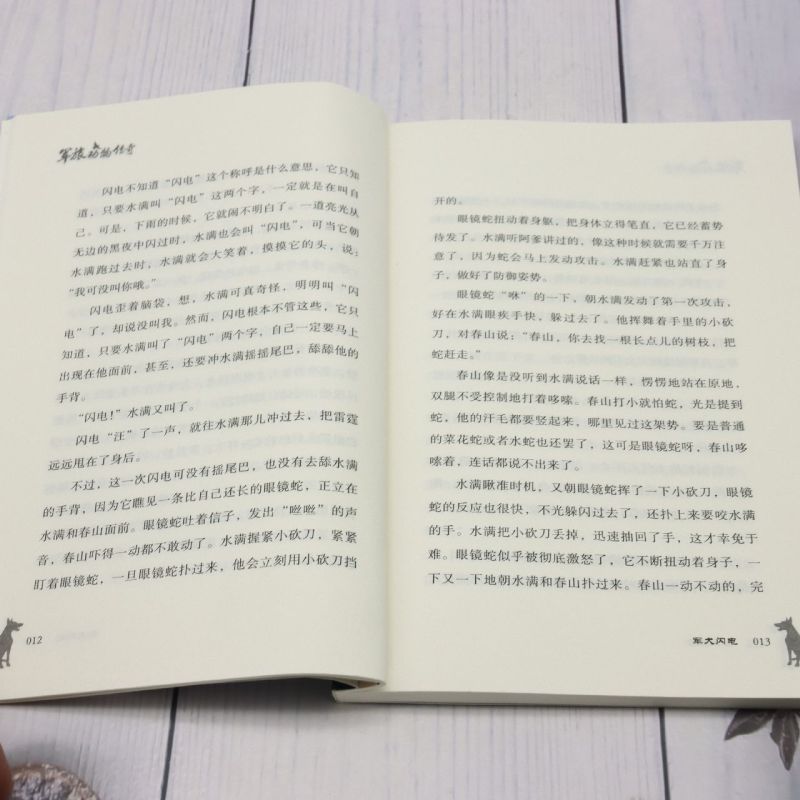 军旅动物传奇
闪电不知道“闪电”这个称呼是什么意思，它只知
道，只要水满叫“闪电”这两个字，一定就是在叫自
己。可是，下雨的时候，它就闹不明白了。一道亮光从
无边的黑夜中闪过时，水满也会叫“闪电”，可当它朝
水满跑过去时，水满就会大笑着，摸摸它的头，说：
“我可没叫你哦。”
闪电歪着脑袋，想，水满可真奇怪，明明叫“闪
电”了，却说没叫我。然而，闪电根本不管这些，它只
知道，只要水满叫了“闪电”两个字，自己一定要马上
出现在他面前，甚至，还要冲水满摇摇尾巴，舔舔他的
手背。
“闪电！”水满又叫了。
闪电“汪”了一声，就往水满那儿冲过去，把雷霆
远远甩在了身后。
不过，这一次闪电可没有摇尾巴，也没有去舔水满
的手背，因为它瞧见一条比自己还长的眼镜蛇，正立在
水满和春山面前。眼镜蛇吐着信子，发出“咝咝”的声
音，春山吓得一动都不敢动了。水满握紧小砍刀，紧紧
盯着眼镜蛇，一旦眼镜蛇扑过来，他会立刻用小砍刀挡
012
开的。
眼镜蛇扭动着身躯，把身体立得笔直，它已经蓄势
待发了。水满听阿爹讲过的，像这种时候就需要千万注
意了，因为蛇会马上发动攻击。水满赶紧也站直了身
子，做好了防御姿势。
眼镜蛇“咻”的一下，朝水满发动了第一次攻击，
好在水满眼疾手快，躲过去了。他挥舞着手里的小砍
刀，对春山说：“春山，你去找一根长点儿的树枝，把
蛇赶走。”
春山像是没听到水满说话一样，愣愣地站在原地，
双腿不受控制地打着哆嗦。春山打小就怕蛇，光是提到
蛇，他的汗毛都要竖起来，哪里见过这架势。要是普通
的菜花蛇或者水蛇也还罢了，这可是眼镜蛇呀，春山哆
嗦着，连话都说不出来了。
水满瞅准时机，又朝眼镜蛇挥了一下小砍刀，眼镜
蛇的反应也很快，不光躲闪过去了，还扑上来要咬水满
的手。水满把小砍刀丢掉，迅速抽回了手，这才幸免于
难。眼镜蛇似乎被彻底激怒了，它不断扭动着身子，一
下又一下地朝水满和春山扑过来。春山一动不动的，完
军犬闪电 013